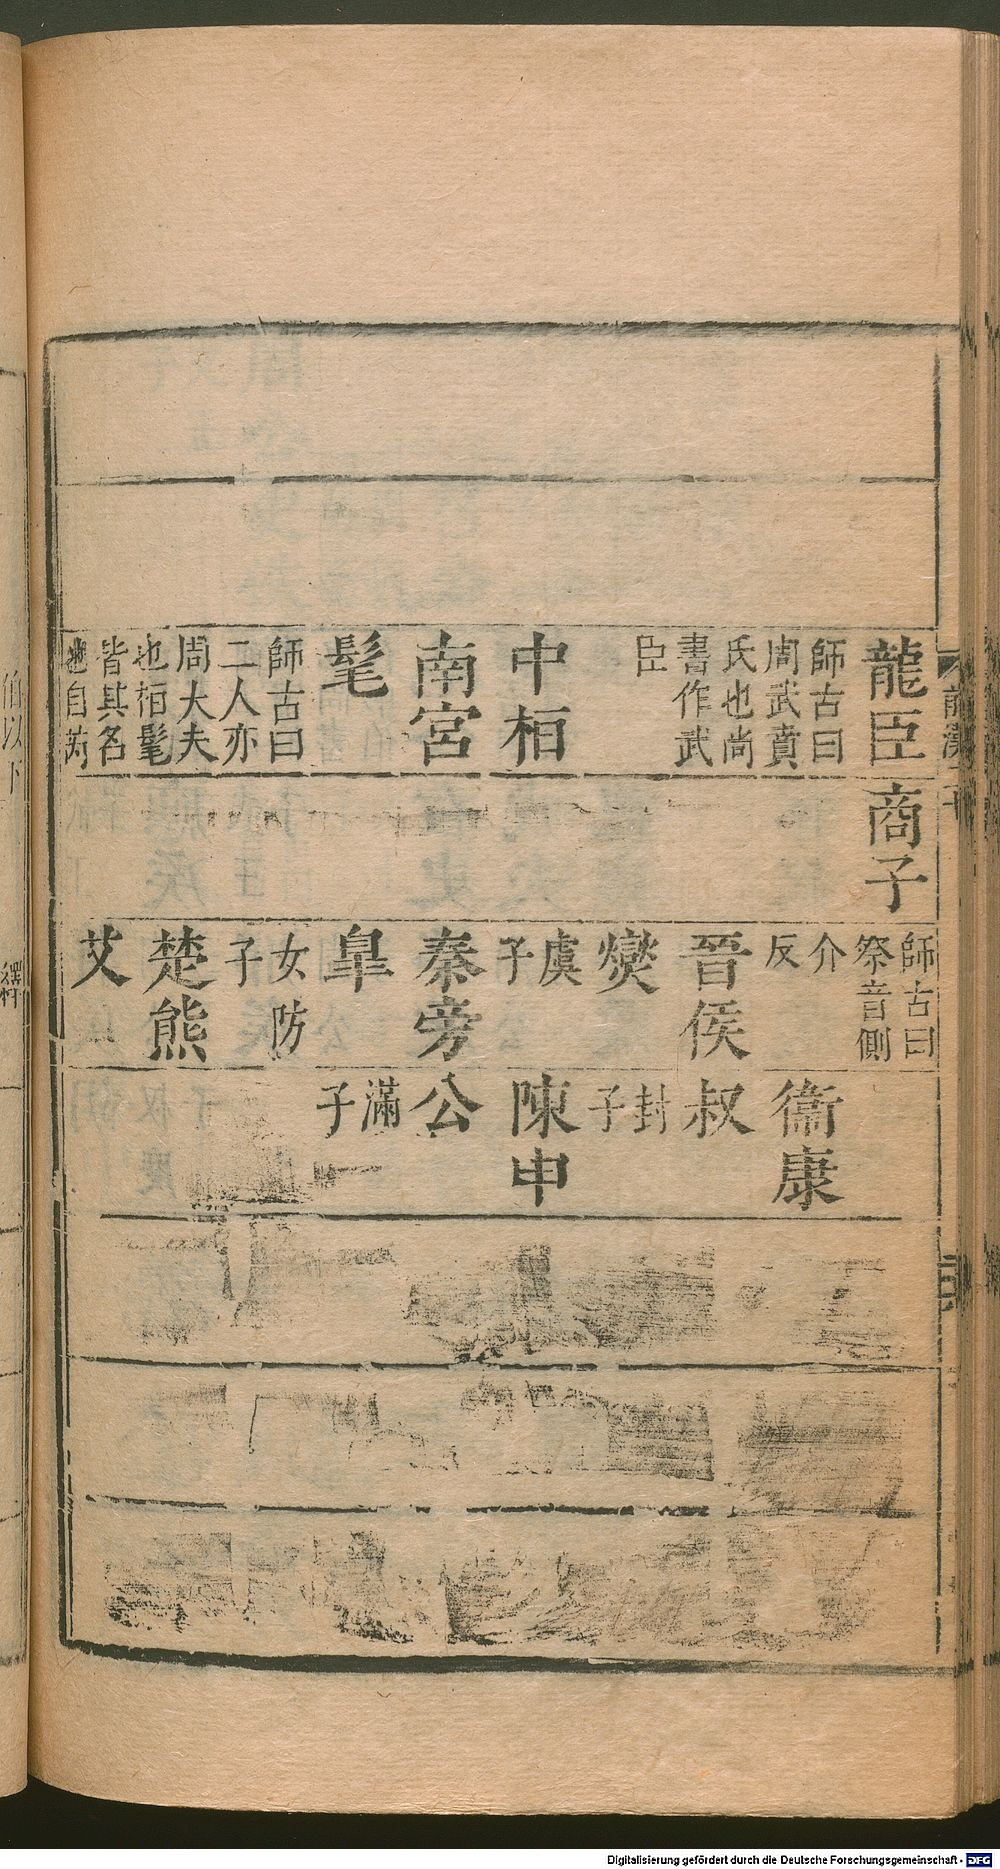 龍臣
師古曰
周武賁
氏也尚
書作武
臣
中桓
南宮
髦
師古曰
二人亦
周大夫
也桓髦
皆其名
也自芮
商子
師古曰
祭音側
介
反
晉侯
燮
虞
子
秦旁
皐
女防
子
楚熊
艾
衞康
叔
封
子
陳申
公
滿
子
伯以下
Digitalisierung gefördert durch die Deutsche Forschungsgemeinschaft - DFG